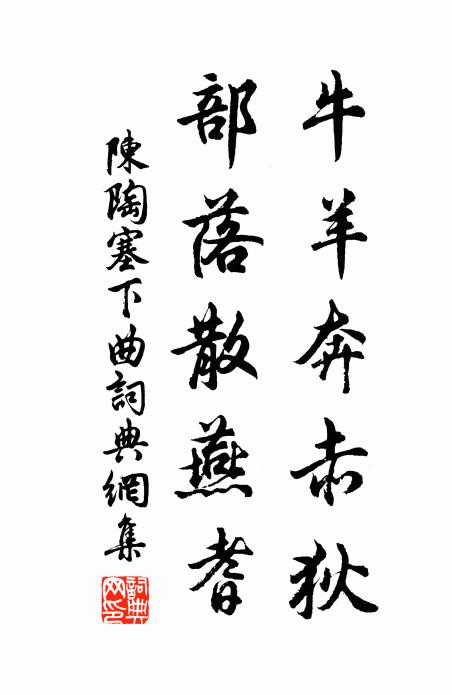 牛羊奔赤狄
部落散燕耆
陳陶塞下曲詞典網集
詞典
网印